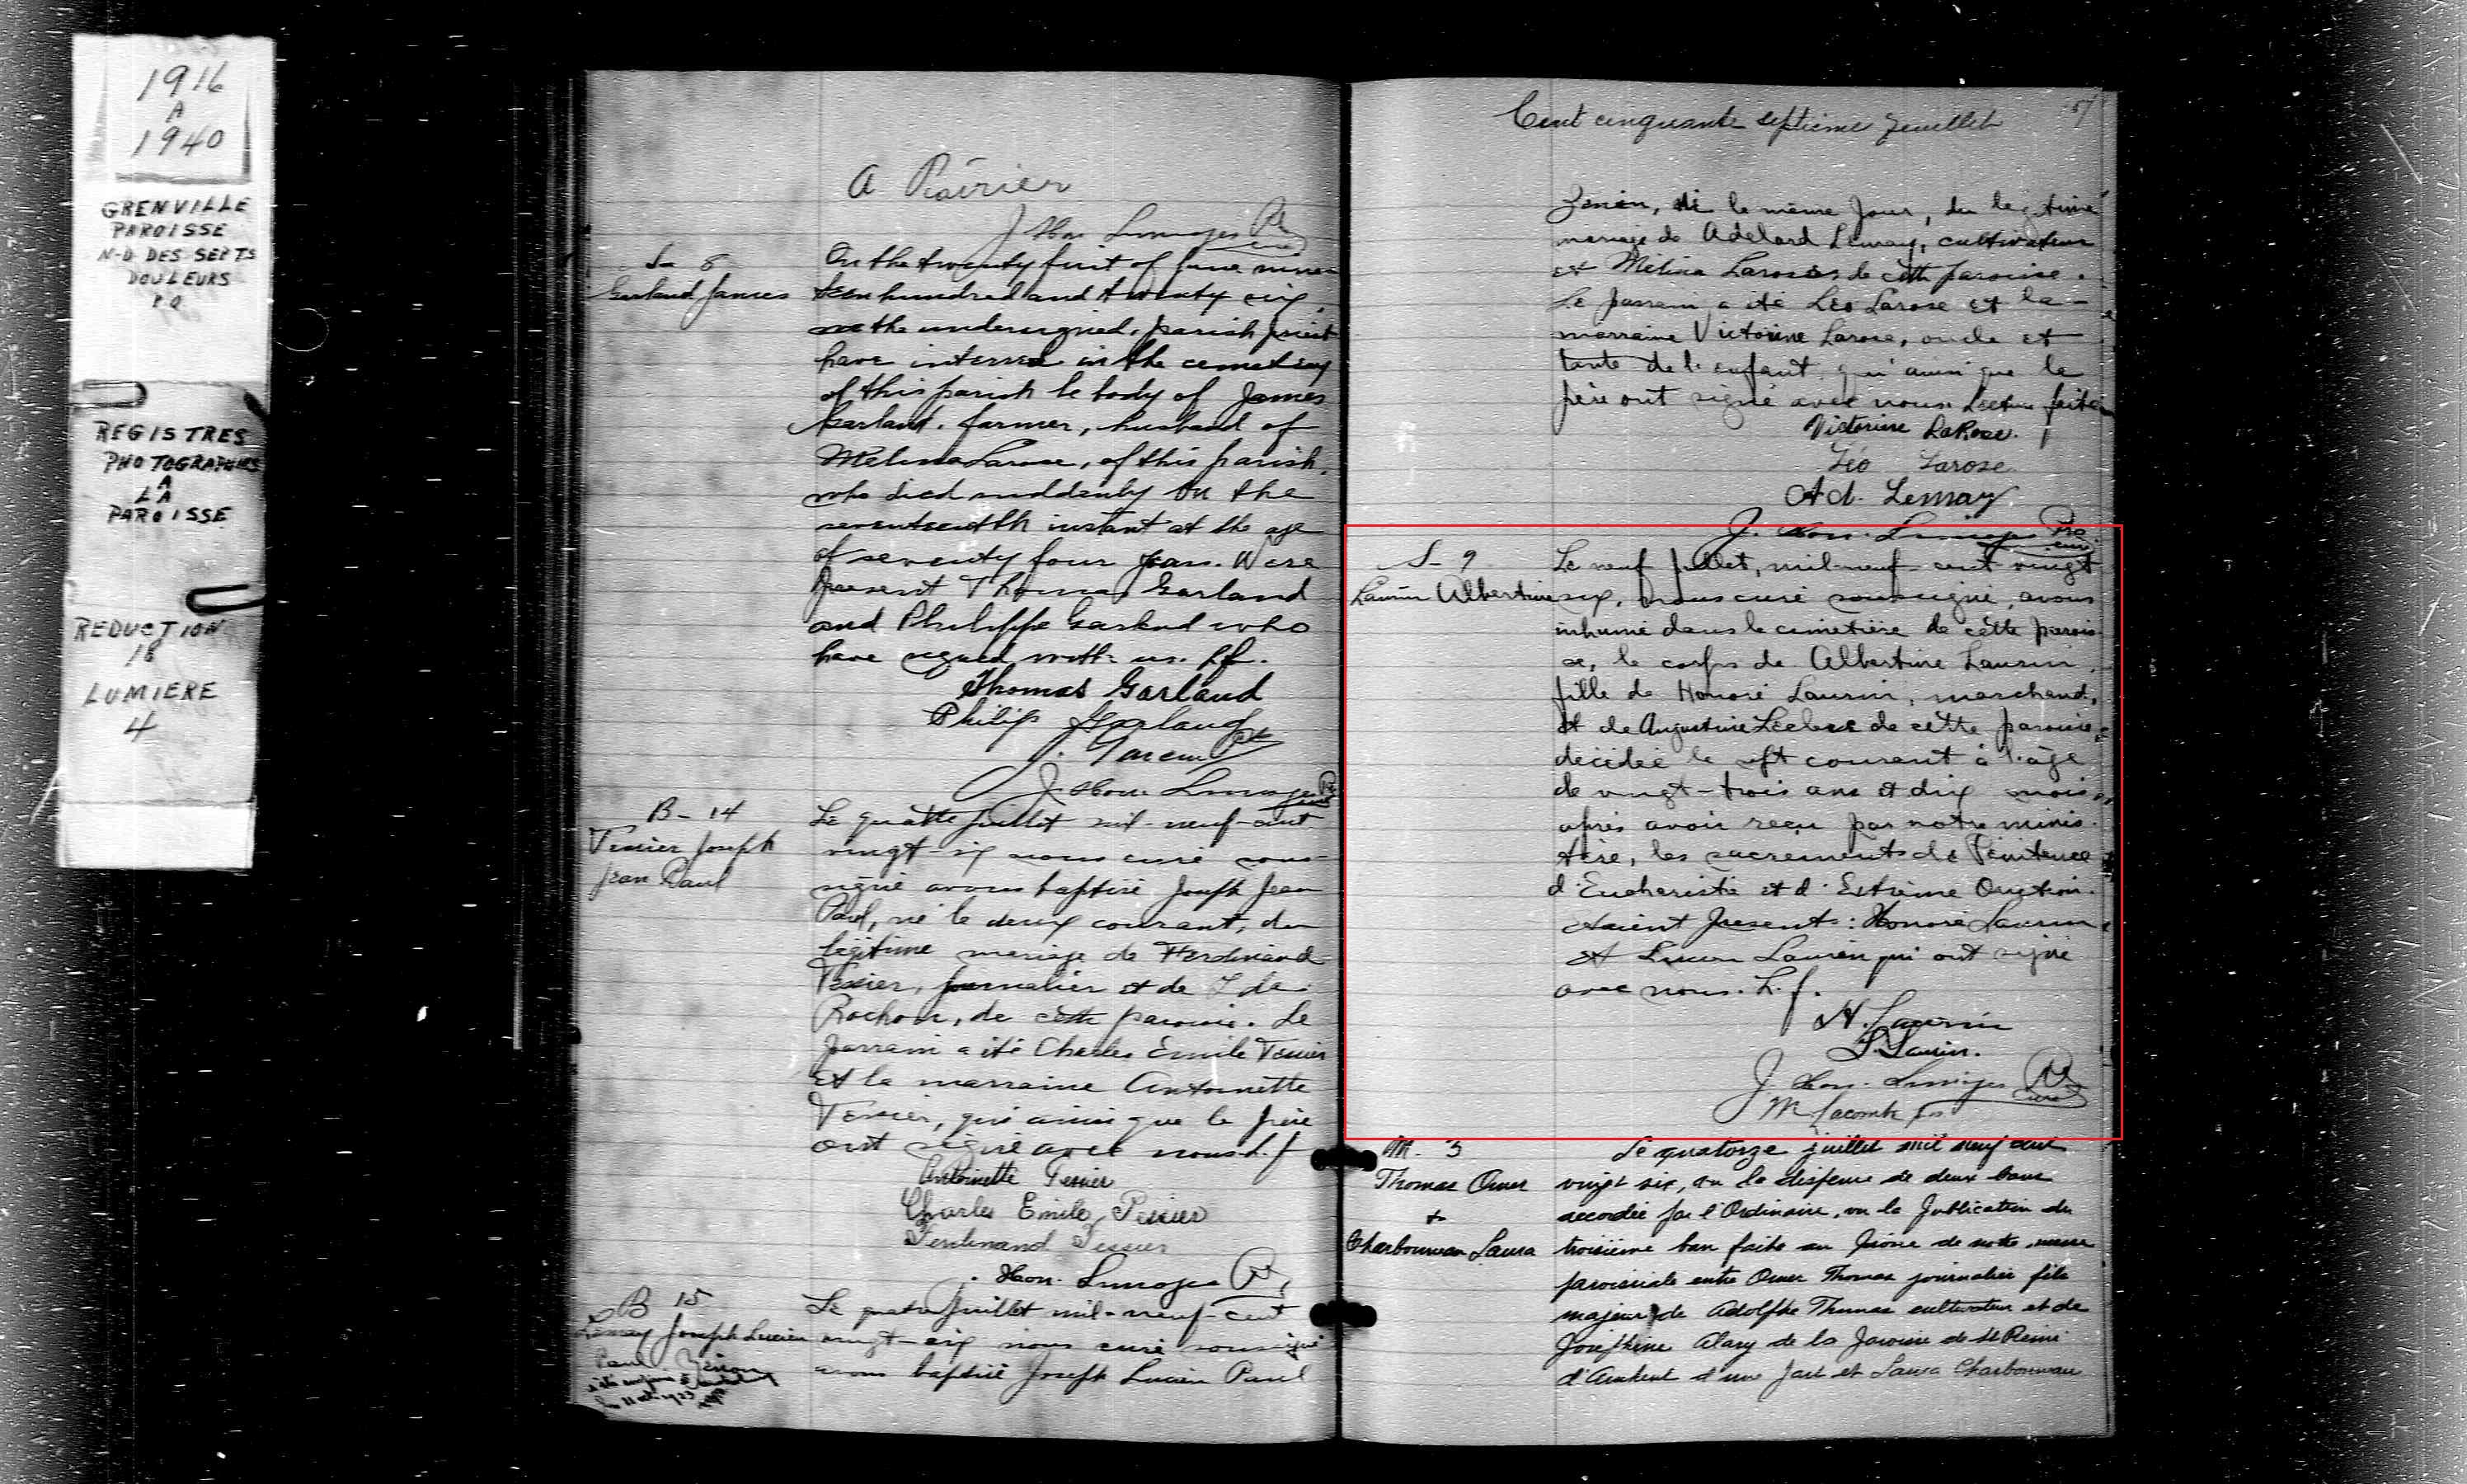 1916
A
1940
GRENVILLE
PAROISSE
N-D DES SEPTS
DOULEURS
P.Q.
REGISTRES
PHOTOGRAPHIÉS
A
LA
PAROISSE
REDUCTION
18
LUMIERE
4
A Poirier
J. Hon. Limoges Ptre
curé
S- 8
Garland James
On the twenty first of June nine-
teen hundred and twenty six,
we the undersigned, parish priest
have interred in the cemetery
of this parish le body of James
Garland, farmer, husband of
Melina Larose, of this parish,
who died suddenly on the
seventeenth instant at the age
of seventy four years. Were
present Thomas Garland
and Philippe Garland who
have signed with us. L.f.
Thomas Garland
Philip Garland
J. Hon. Limoges Ptre
curé
B- 14
Tessier Joseph
Jean Paul
Le quatre juillet mil-neuf-cent
vingt-six nous curé sous-
signé avons baptisé Joseph Jean
Paul, né le deux courant, du
légitime mariage de Ferdinand
Tessier, journalier et de Ida
Rochon, de cette paroisse. Le
parrain a été Charles Emile Tessier
et la marraine Antoinette
Tessier, qui ainsi que le père
ont signé avec nous. L.f
Antoinette Tessier
Charles Emile Tessier
Ferdinand Tessier
J. Hon. Limoges Ptre
B 15
Lemay Joseph Lucien
Paul Zénon
Le quatre juillet mil-neuf-cent
vingt-six nous curé soussigné
avons baptisé Joseph Lucien Paul
Cent cinquante septième feuillet
157
Zénon, né le même jour, du légitime
mariage de Adelard Lemay, cultivateur
et Mélina Larose de cette paroisse.
Le parrain a été Léo Larose et la
marraine Victorine Larose, oncle et
tante de l'enfant qui ainsi que le
père ont signé avec nous. Lecture faite
Victorine LaRose.
Léo Larose
Ad. Lemay
J. Hon. Limoges Ptre
curé
S- 9
Laurin Albertine
Le neuf juillet, mil-neuf-cent vingt
six, nous curé soussigné, avons
inhumé dans le cimetière de cette parois-
se, le corps de Albertine Laurin,
fille de Honoré Laurin, marchand,
et de Augustine Leclerc de cette paroisse
décédée le sept courant à l'âge
de vingt-trois ans et dix mois,
après avoir reçu par notre minis-
tère, les sacrements de Pénitence
d'Eucharistie et d'Extrème Onction.
étaient présents: Honoré Laurin
et Lucien Laurin qui ont signé
avec nous. L.f.
H. Laurin
L. Laurin.
J. Hon. Limoges Ptre
curé
M Lacombe ptre
M. 3
Thomas Omer
+
Charbonneau Laura
Le quatorze juillet mil neuf cent
vingt six, vu la dispense de deux bans
accordée par l'Ordinaire, vu la publication du
troisième ban faite au prône de notre messe
paroissiale entre Omer Thomas journalier fils
majeur de Adolphe Thomas cultivateur et de
Josephine Alary de la paroisse de St Rémi
d'Amherst d'une part et Laura Charbonneau